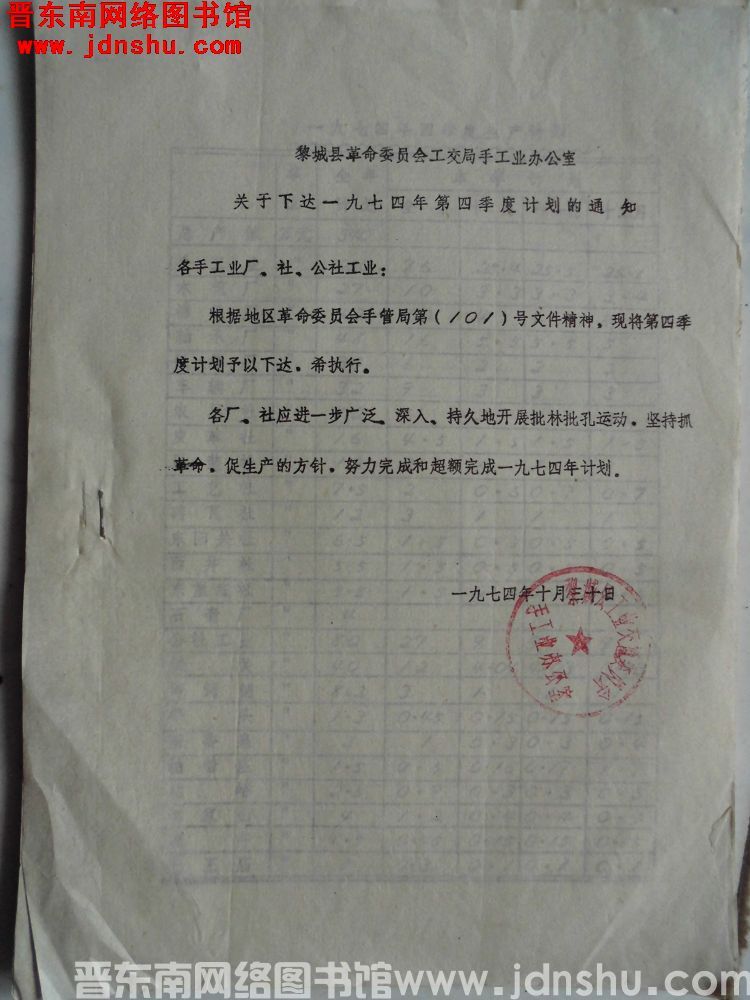 晋东南网络图书馆
www.jdnshu.com
黎城县革命委员会工交局手工业办公室
关于下达一九七四年第四季度计划的通知
各手工业厂、社、公社工业:
根据地区革命委员会手管局第(101)号文件精神,现将第四季
度计划予以下达,希执行。
各厂、社应进一步广泛、深入、持久地开展批林批孔运动,坚持抓
革命,促生产的方针,努力完成和超额完成一九七四年计划。
一九七四年十月三十日
手工业办公室
晋东南网络图书馆www.jdnshu.com